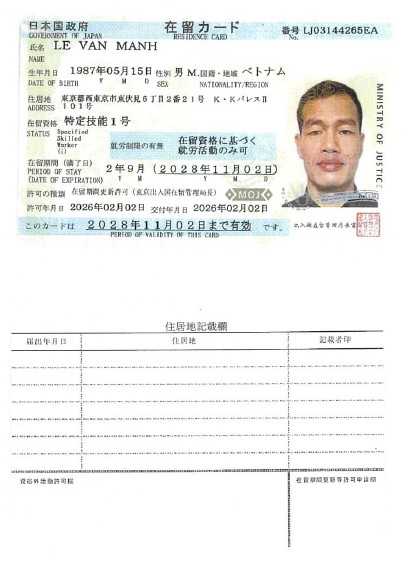 日本国政府 在留カード 番号 LJ03144265EA
GOVERNMENT OF JAPAN RESIDENCE CARD No.
氏名 LE VAN MANH
NAME
生年月日 1987年05月15日 性別 男 M. 国籍・地域 ベトナム
DATE OF BIRTH Y M D SEX NATIONALITY/REGION
住居地 東京都西東京市東伏見6丁目2番21号 K・KパレスⅡ
ADDRESS 101号
在留資格 特定技能1号
STATUS Specified
Skilled
Worker
(i)
就労制限の有無 在留資格に基づく
就労活動のみ可
在留期間(満了日) 2年9月(2028年11月02日)
PERIOD OF STAY Y M Y M D
(DATE OF EXPIRATION)
許可の種類 在留期間更新許可(東京出入国在留管理局長)
MOJ
許可年月日 2026年02月02日 交付年月日 2026年02月02日
このカードは 2028年11月02日まで有効 です。
PERIOD OF VALIDITY OF THIS CARD
MINISTRY OF JUSTICE
出入国在留管理庁長官
住居地記載欄
届出年月日 住居地 記載者印
資格外活動許可欄 在留期間更新等許可申請欄